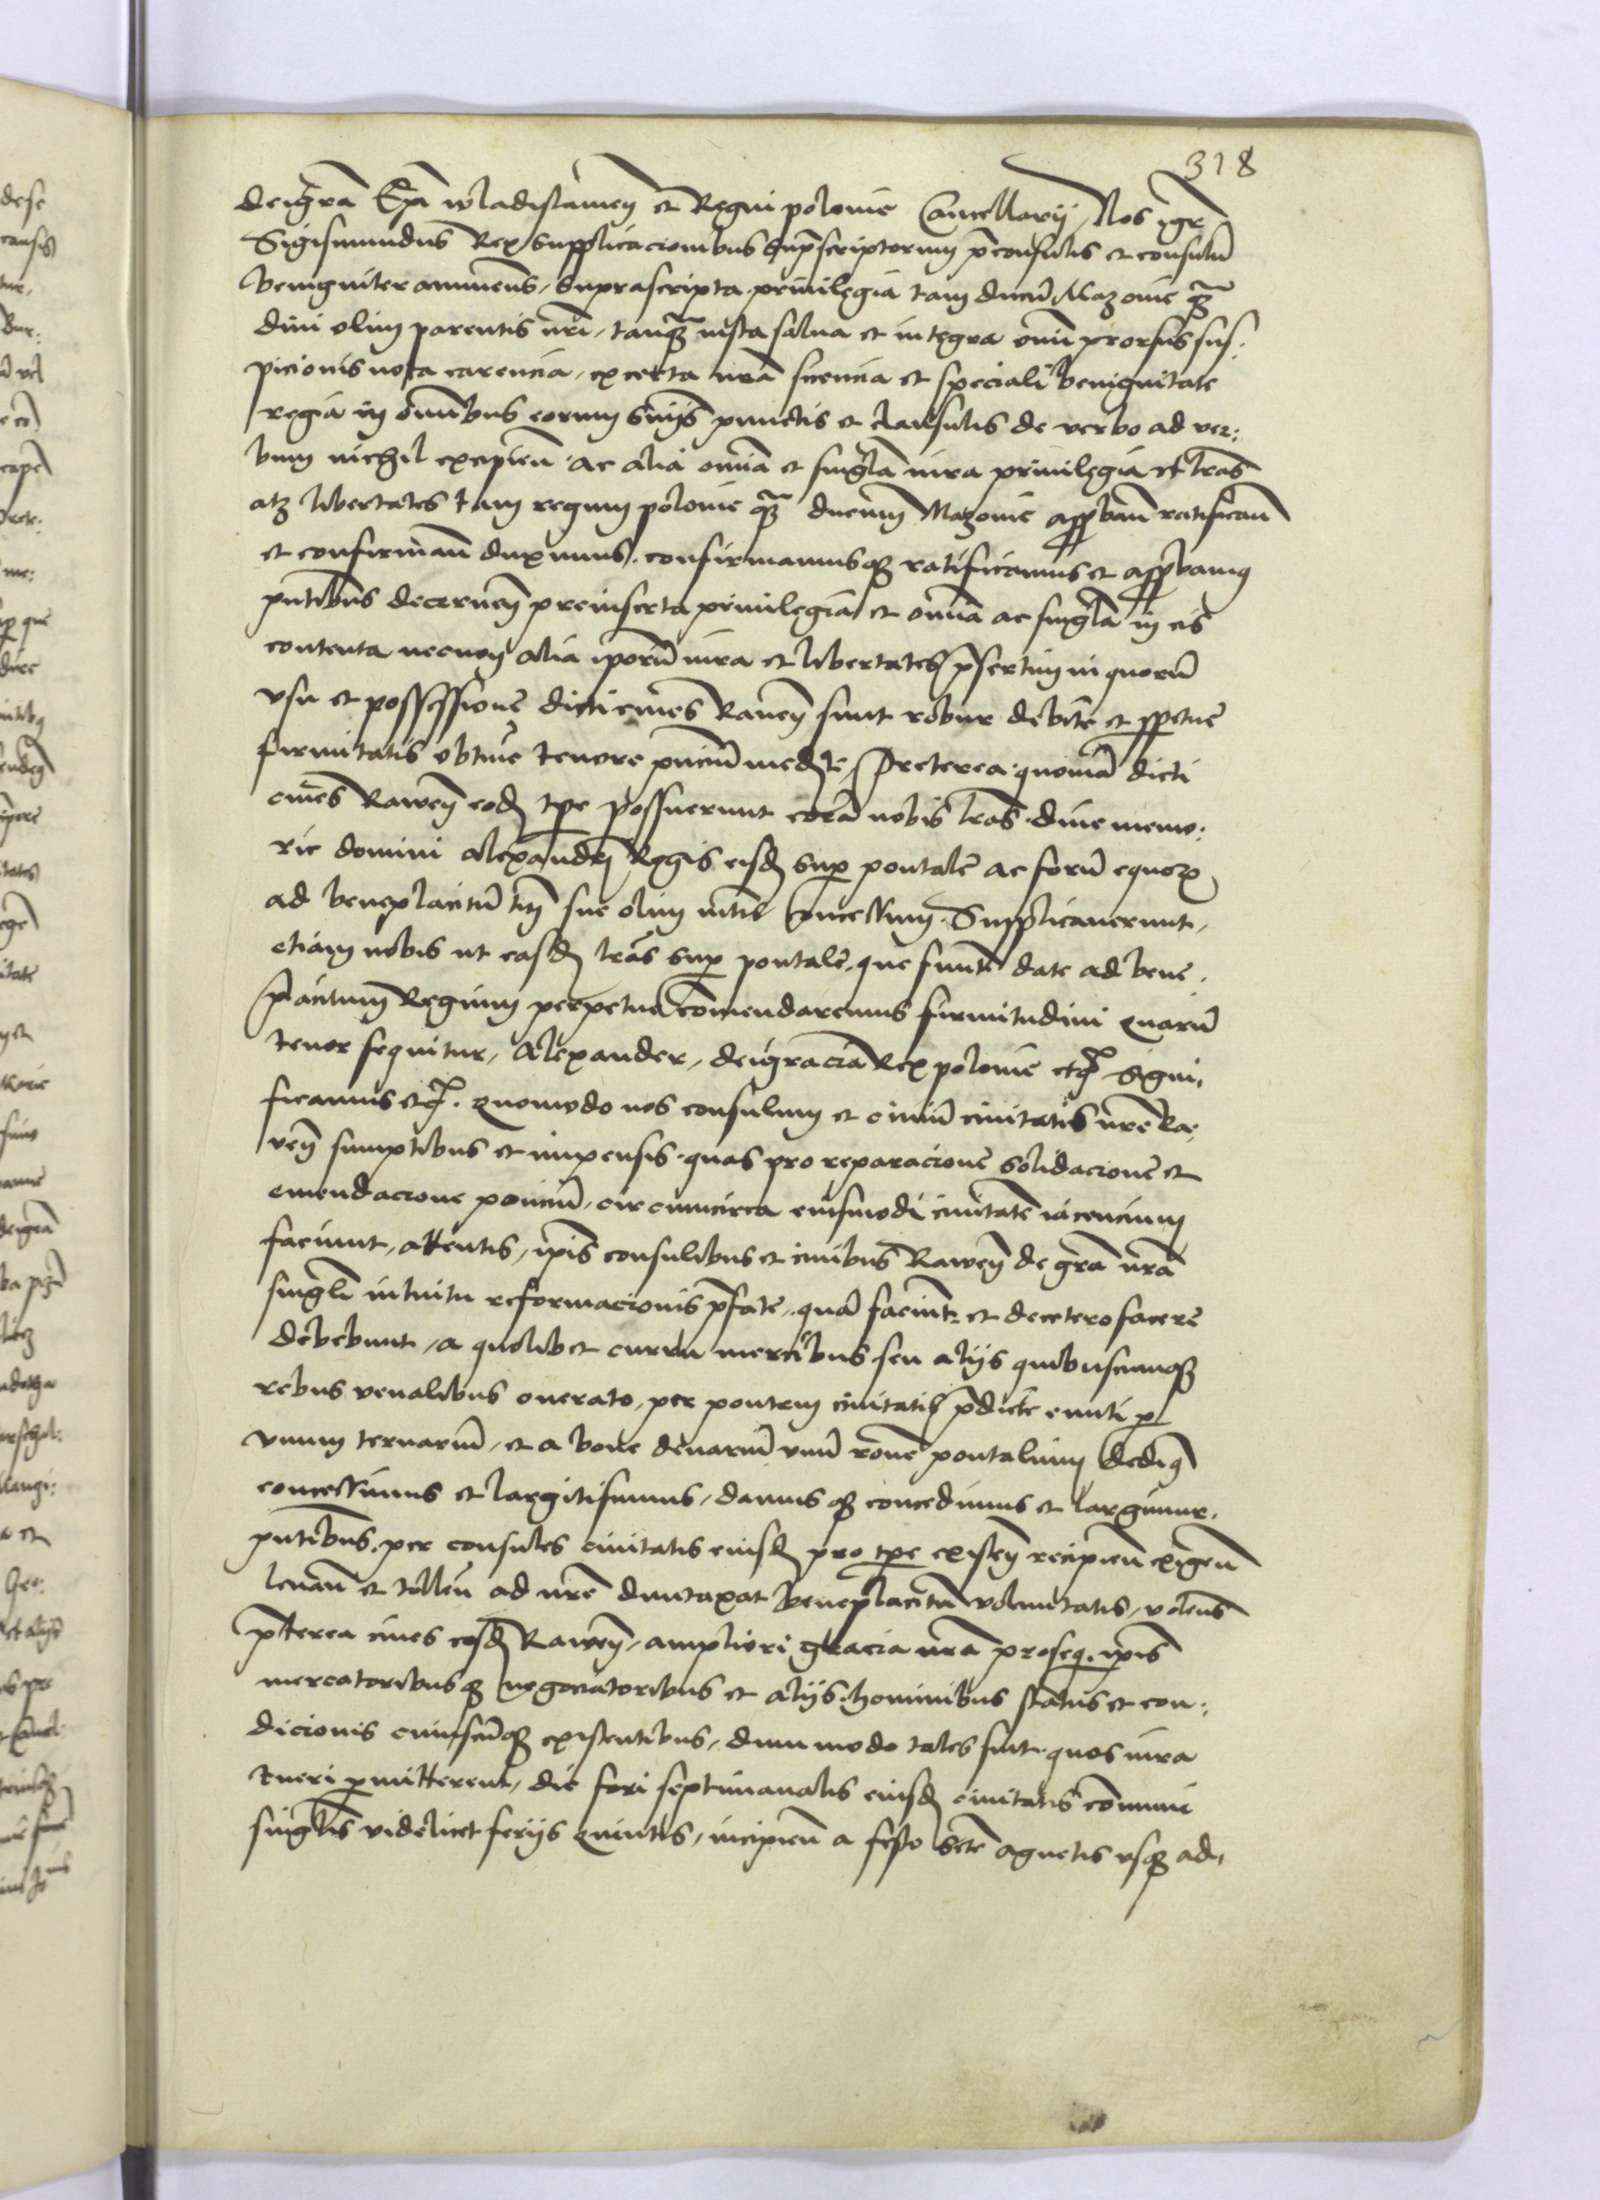 318
dei gra Epi wladislamien et Regni polonie Cancellarij Nos igr
Sigismundus Rex supplicacionibus supscriptorum pconsulis et consulu
benigniter annuens, suprascripta privilegia tam ducu Mazovie qz
divi olim parentis nri, tanqz iusta salva et integra omi prorsus sus:
picionis nota carencia, ex certa nra sciencia et speciali benignitate
regia in omibus eorum punctis et clausulis de verbo ad ver:
bum nichil excipien ac alia omia et singla iura privilegia et lras
atz libertates tam regum polonie qz ducum Mazovie appban ratifican
et confirman duximus, confirmamusqz ratificamus et appbamus
pntibus decernen preinserta privilegia et omia ac singla in eis
contenta necnon alia iporu iura et libertates psertim in quoru
usu et possessione dicti cives Raven sunt robur debite et ppetue
firmitatis obtine tenore pnciu medte Preterea quonia dicti
cives Rawen eod tpe possuerunt cora nobis lras dive memo:
rie domini Alexandri Regis eisd sup pontale ac foru equor
ad beneplacitu tm sue olim mtis concessum. Supplicaverunt,
etiam nobis ut easd lras sup pontale, que funt date ad bene.
placitum Regium perpetue comendaremus firmitudini Quaru
tenor sequitur, Alexander, dei gracia Rex polonie etc signi,
ficamus etc. Quomodo nos consulum et civiu civitatis nre Ra:
ven sumptibus et impensis, quas pro reparacione solidacione et
emendacione ponciu, circumcirca eiusmodi civitate iacencium
faciunt, attentis, ipis consulibus et civibus Rawen de gra nra
singli intuitu reformacionis pfate, qua faciunt et decetero facere
debebunt, a quolibet curru mercibus seu alijs quibuscumqz
rebus venalibus onerato, per pontem civitatis pdicte eunti p
unum ternariu, et a bove denariu unu rone pontalium dedimus
concessimus et largiti sumus, damusqz concedimus et largimur.
pntibus, per consules civitatis eiusd pro tpe existen recipien exigen
levan et tollen ad nre duntaxat beneplacitu voluntatis, volens
pterea cives eosd Rawen, ampliori gracia nra proseq, ipis
mercatoribusqz negociatoribus et alijs hominibus status et con:
dicionis cuiuscuqz existentibus, dum modo tales sint quos iura
tueri pmitterent, die fori septimanalis eiusd civitatis comuni
singlis videlicet ferijs Quintis, incipien a festo scte Agnetis usqz ad,